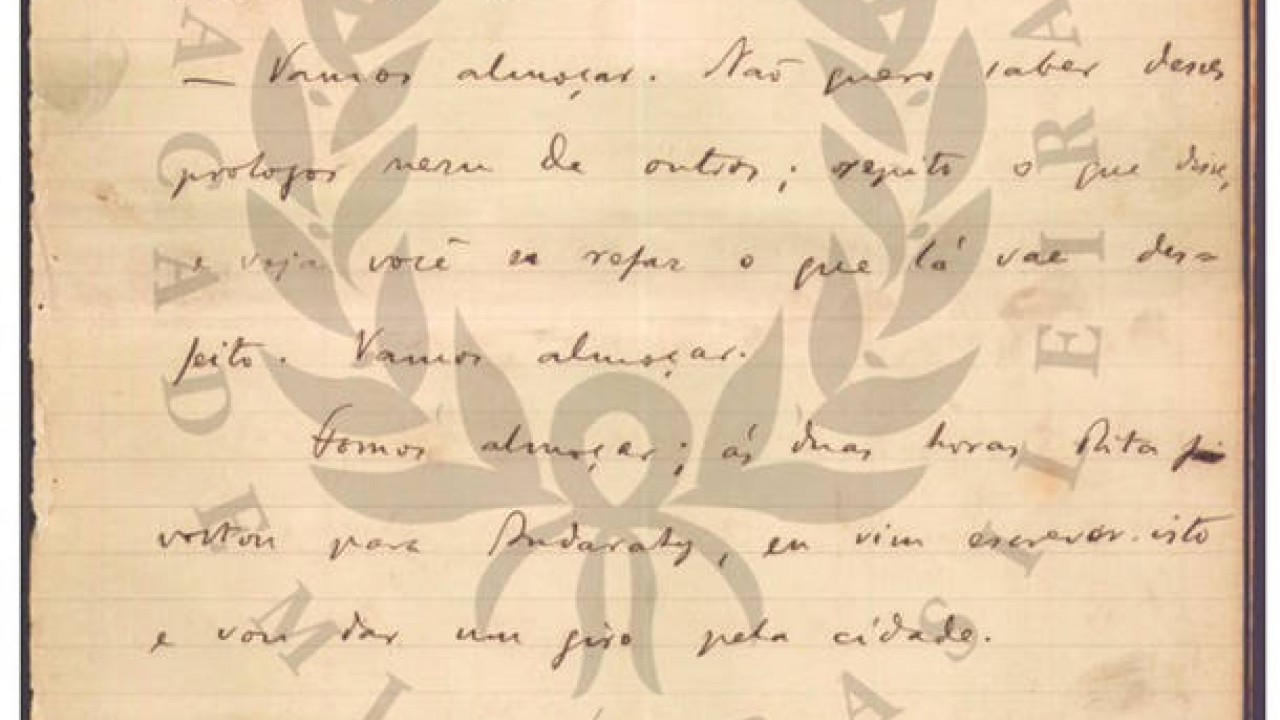 — Vamos almoçar. Não quero saber desses
prologos nem de outros; repito o que disse,
e veja você se refaz o que lá vae des=
feito. Vamos almoçar.
Fomos almoçar; ás duas horas Rita
voltou para Andarahy, eu vim escrever isto
e vou dar um giro pela cidade.
ACADEMI
AS
ILEIRA